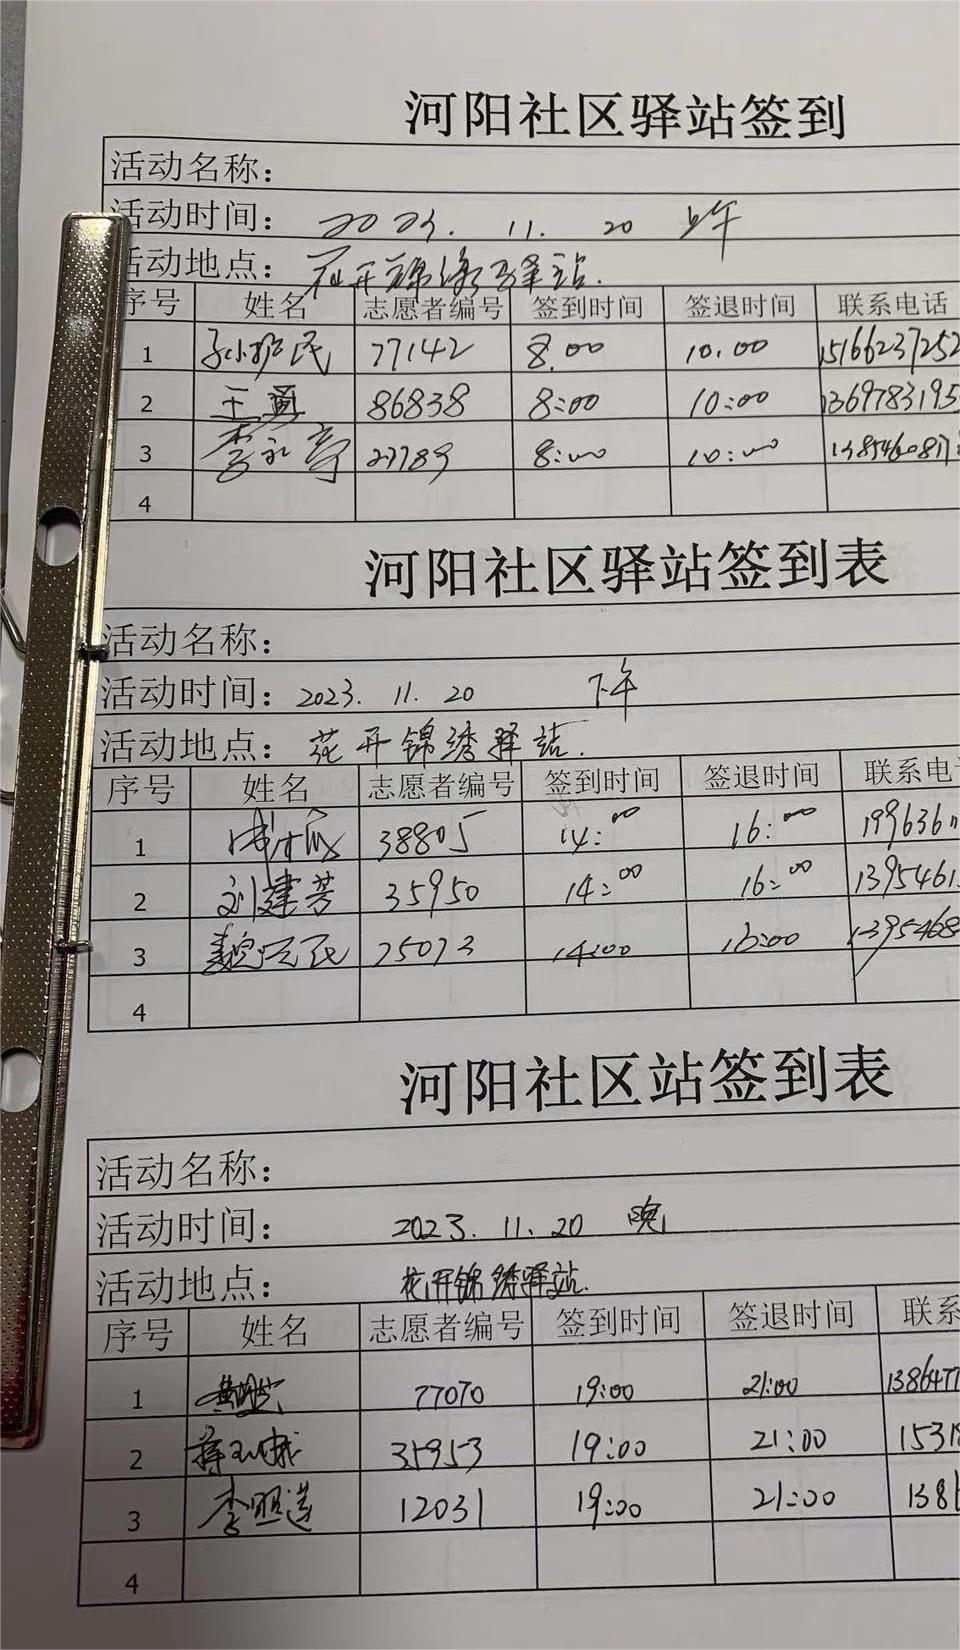 河阳社区驿站签到
活动名称：
活动时间： 2023. 11. 20 上午
活动地点： 花开锦绣驿站.
序号 姓名 志愿者编号 签到时间 签退时间 联系电话
1 民 77142 8.00 10.00 15166237252
2 王 86838 8:00 10:00 1369783195
3 李永 27789 8:00 10:00
4
河阳社区驿站签到表
活动名称：
活动时间： 2023. 11. 20 下午
活动地点： 花开锦绣驿站.
序号 姓名 志愿者编号 签到时间 签退时间 联系电
1 38805 14:00 16:00 199636
2 刘建芳 35950 14:00 16:00 1395461
3 魏 民 25073 14:00 16:00 1395468
4
河阳社区站签到表
活动名称：
活动时间： 2023. 11. 20 晚
活动地点： 花开锦绣驿站.
序号 姓名 志愿者编号 签到时间 签退时间 联系
1 77070 19:00 21:00 138647
2 蒋 35953 19:00 21:00 1531
3 李明莲 12031 19:00 21:00 138
4